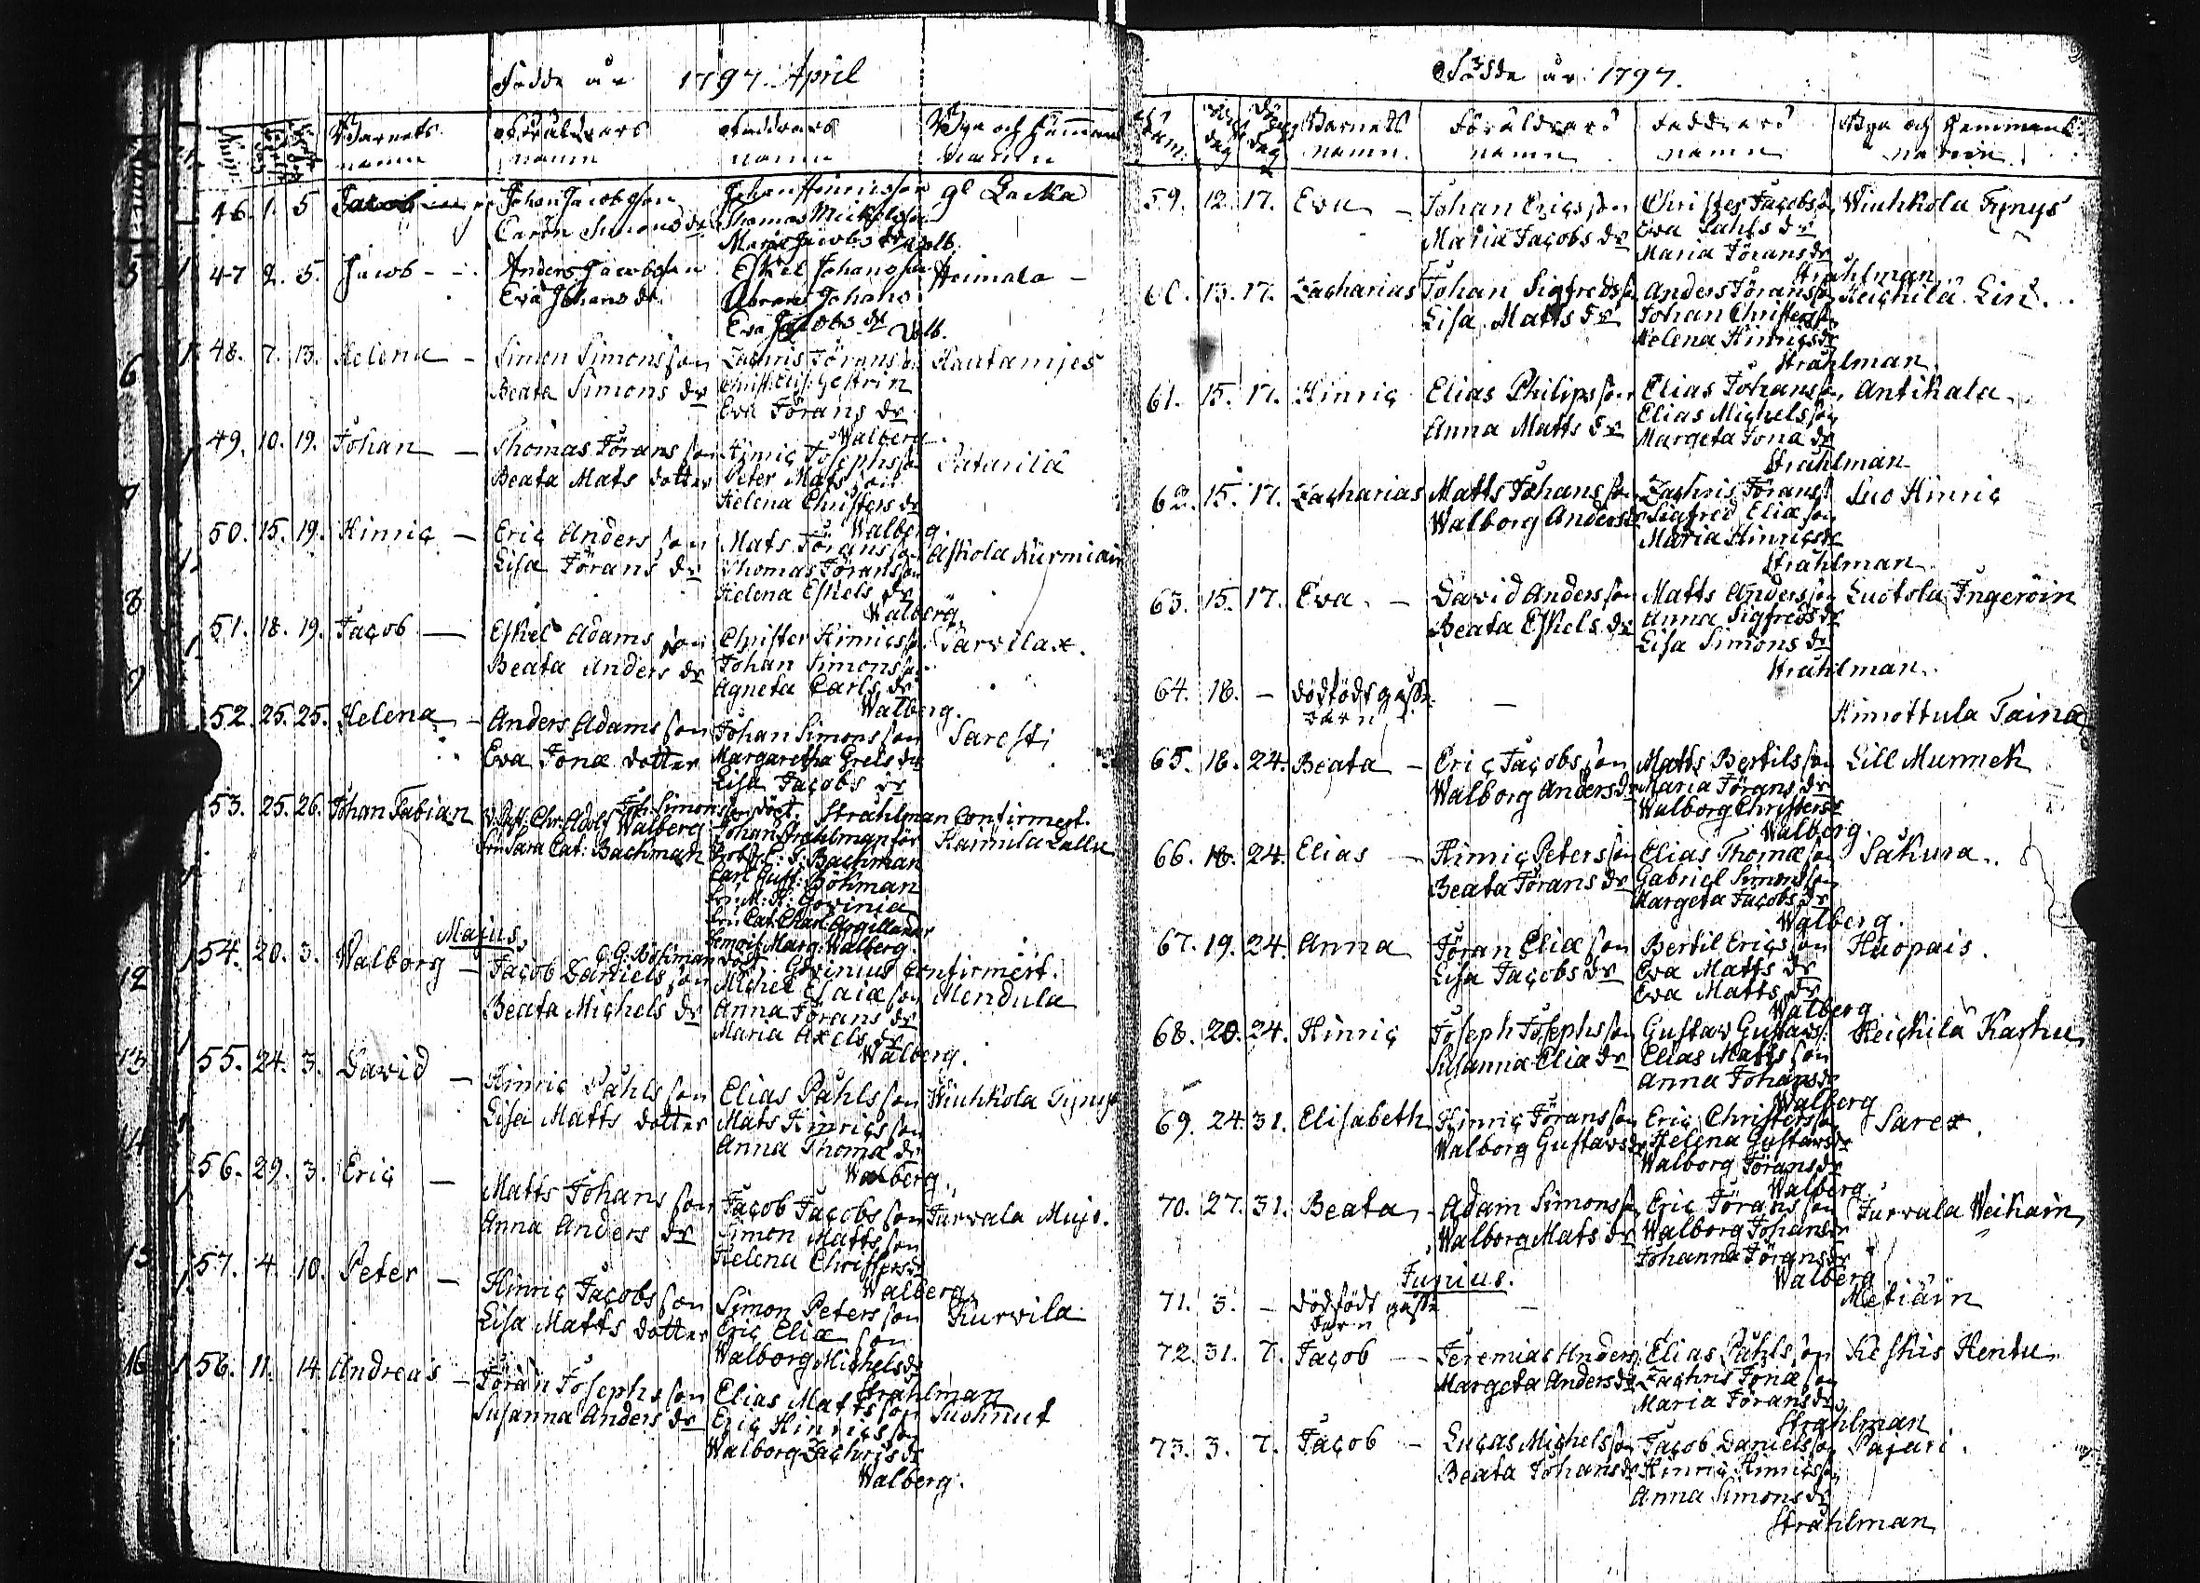 Födde år 1797. April
Barnets namn Föräldrars namn Faddrars namn Bya och Hemmans namn
46. 1. 5 Johan Jacobsson Johan Hinricsson gl Lacka
Carin Simons dr Thomas Mickelsson
Maria Jacobs dr
47 2. 5. Jacob Anders Jacobsson Eskel Johansson Heimala
Eva Johans dr Abram Johans
Eva Jacobs dr Walb.
48. 7. 13. Helena Simon Simonsson Zachris Jörans son Hautamjes
Beata Simons dr Christ: Elis: Gestrin
Eva Jörans dr
Walberg
49. 10. 19. Johan Thomas Jörans son Hinric Josephsson Satarilä
Beata Mats dotter Peter Mats son
Helena Christers dr
Walberg.
50. 15. 19. Hinric Eric Anders son Mats Jörans son Askola Nurmiain
Lisa Jörans dr Thomas Jöransson
Helena Eskels dr
Walberg.
51. 18. 19. Jacob Eskel Adams son Christer Hinricsson Sarvilax.
Beata Anders dr Johan Simonsson
Agneta Carls dr
Walberg.
52. 25. 25. Helena Anders Adams son Johan Simons son Saresti
Eva Jonæ dotter Margaretha Grels dr
Lisa Jacobs dr
Joh: Simonsson döpt. Strahlman Confirmert.
53. 25. 26. Johan Fabian Chr: Adolf Walberg Johan Strahlman Hamula Lallu
Fru Sara Cat: Bachman Bachman
Carl Gust: Böhman
Fru M: H: Govinia
Fru Cat: Charl: Argillander
Marg: Walberg.
Majus.
C. G. Böhman döpt Govinius Confirmert.
54. 20. 3. Walborg Jacob Daniels son Michel Esaiæ son Mendula
Beata Michels dr Anna Jörans dr
Maria Axels dr
Walberg.
55. 24. 3. David Hinric Påhls son Elias Påhls son Wiuhkola Tynys
Lisa Matts dotter Mats Hinrics son
Anna Thomæ dr
Walberg.
56. 29. 3. Eric Matts Johans son Jacob Jacobs son Jurvala Mujo.
Anna Anders dr Simon Matts son
Helena Christers dr
Walberg.
57. 4. 10. Peter Hinric Jacobs son Simon Peters son Kurvila
Lisa Matts dotter Eric Eliæ son
Walborg Michels dr
Strahlman
58. 11. 14. Andreas Jöran Josephs son Elias Matts son Suoknut
Susanna Anders dr Eric Hinrics son
Walborg Zachris dr
Walberg.
Födde år 1797.
Num: Barnets namn. Föräldrars namn Faddrars namn Bya och Hemmans namn.
59. 12. 17. Eva Johan Ericsson Christer Jacobsson Wiuhkola Tynys
Maria Jacobs dr Eva Påhls dr
Maria Jörans dr
Strahlman
60. 13. 17. Zacharias Johan Sigfredsson Anders Jöransson Heickilä Lint.
Lisa Matts dr Johan Christersson
Helena Hinrics dr
Strahlman.
61. 15. 17. Hinric Elias Philipsson Elias Johansson Antikala
Anna Matts dr Elias Michelsson
Margeta Jona dr
Strahlman
62. 15. 17. Zacharias Matts Johans son Zachris Jörans Suo Hinric
Walborg Anders dr Sigfred Eliæ son
Maria Hinrics dr
Strahlman
63. 15. 17. Eva. David Anders son Matts Anders son Luotola Ingeröin
Beata Eskels dr Anna Sigfreds dr
Lisa Simons dr
Strahlman.
64. 18. – dödfödt gosse barn Himottula Taina
65. 18. 24. Beata Eric Jacobs son Matts Bertils son Lill Munnek
Walborg Anders dr Maria Jörans dr
Walborg Christers dr
Walberg.
66. 18. 24. Elias Hinric Peters son Elias Thomæ son Sakura.
Beata Jörans dr Gabriel Simonsson
Margeta Jacobs dr
Walberg.
67. 19. 24. Anna Jöran Eliæ son Bertil Erics son Huopais.
Lisa Jacobs dr Eva Matts dr
Eva Matts dr
Walberg
68. 20. 24. Hinric Joseph Josephsson Gustav Gustavs: Heickilä Karhu
Susanna Eliæ dr Elias Matts son
Anna Johans dr
Walberg
69. 24. 31. Elisabeth Hinric Jöransson Eric Christersson Sarex.
Walborg Gustavs dr Helena Gustavs dr
Walborg Jörans dr
Walberg
70. 27. 31. Beata Adam Simonsson Eric Jörans son Jurvala Weikain
Walborg Mats dr Walborg Johans dr
Johanna Jörans dr
Walberg
Junius.
71. 3. – dödfödt gosse barn Metiäin
72. 31. 7. Jacob Jeremias Anders: Elias Påhls son Keskis Hentu
Margeta Anders dr Zachris Jonæ son
Maria Jörans dr
Strahlman
73. 3. 7. Jacob Lucas Michelsson Jacob Danielsson Pajari.
Beata Johans dr Hinric Hinricsson
Anna Simons dr
Strahlman